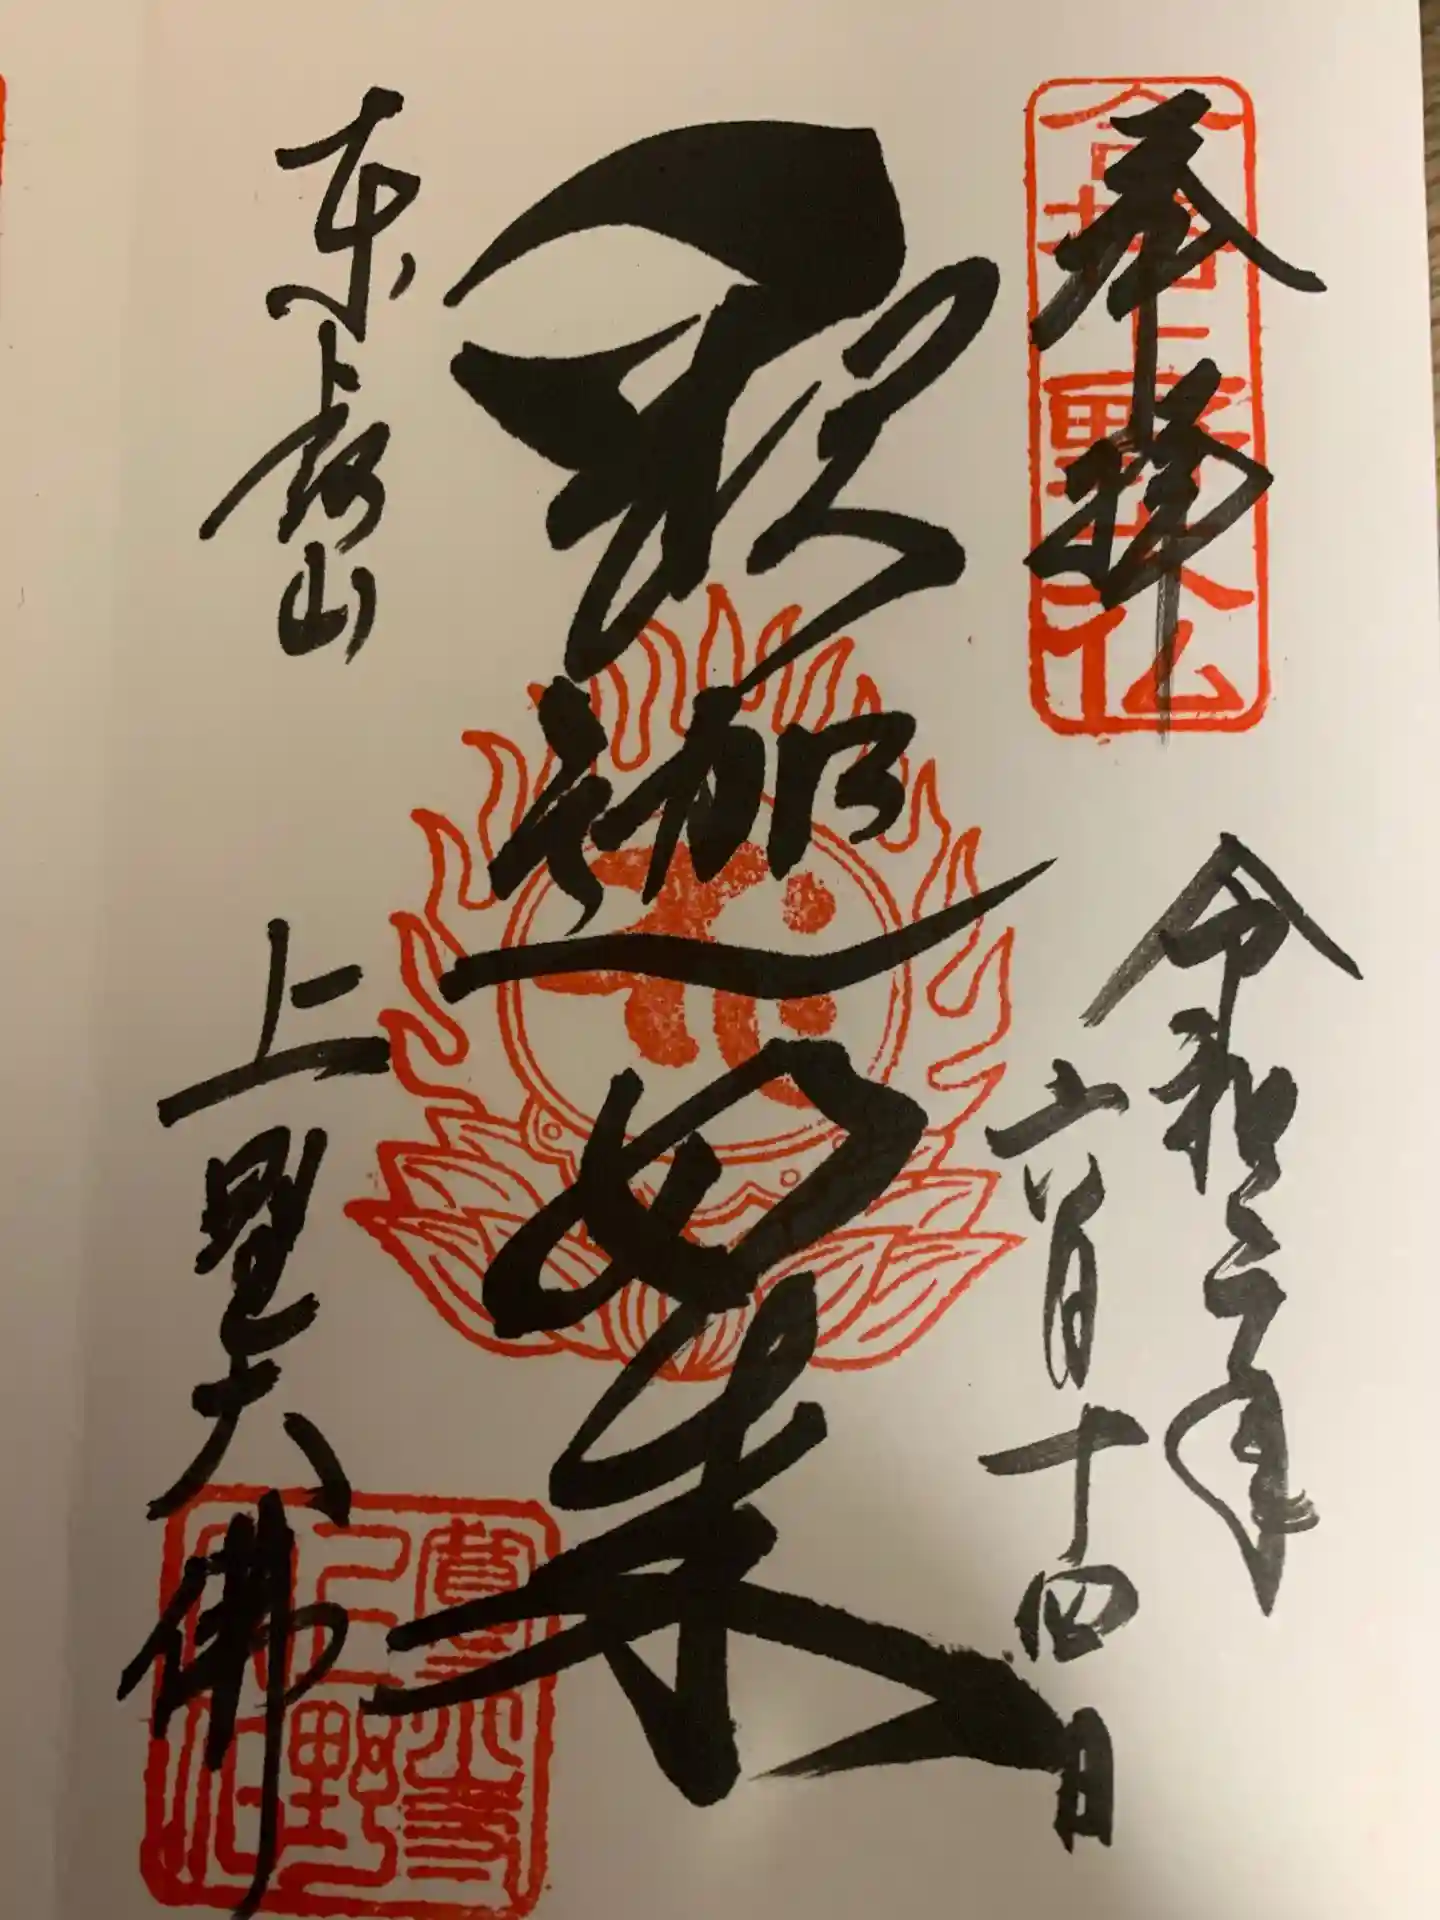 奉拝
合格上野大仏
令和三年
六月十四日
釈迦如来
東叡山
上野大佛
寛永寺
上野
大仏